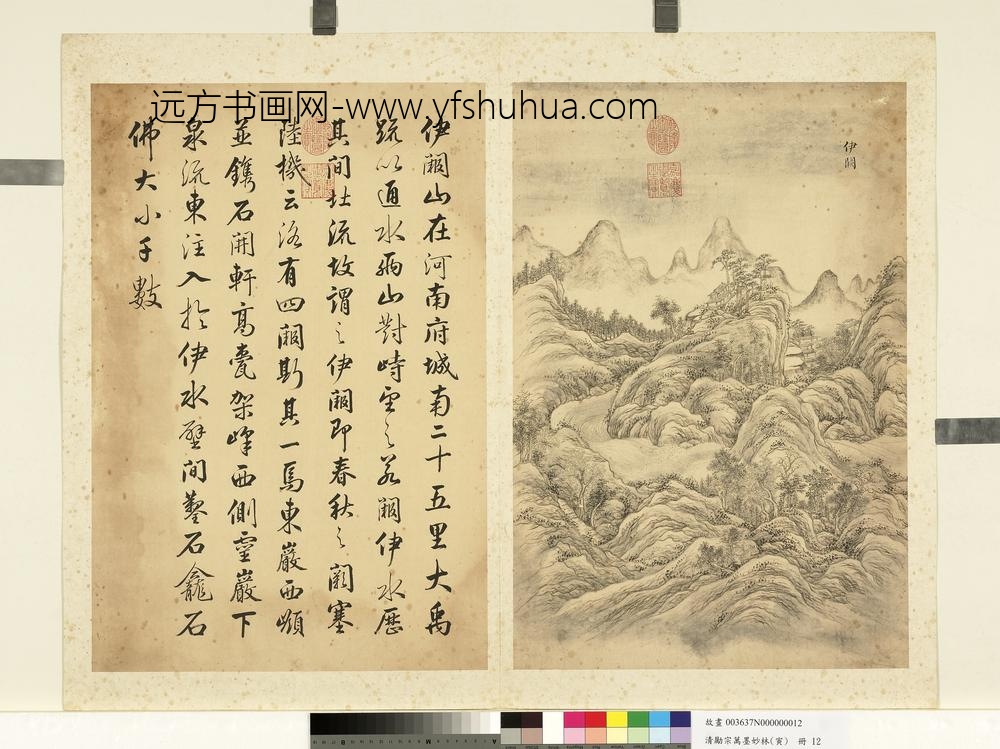 远方书画网-www.yfshuhua.com
伊闕
伊闕山在河南府城南二十五里大禹
疏以通水兩山對峙望之若闕伊水歷
其間北流故謂之伊闕即春秋之闕塞
陸機云洛有四闕斯其一焉東巖西嶺
並鐫石開軒高甍架峰西側靈巖下
泉流東注入於伊水壁間鑿石龕石
佛大小千數
故畫 003637N000000012
清勵宗萬墨妙林(寅) 冊 12